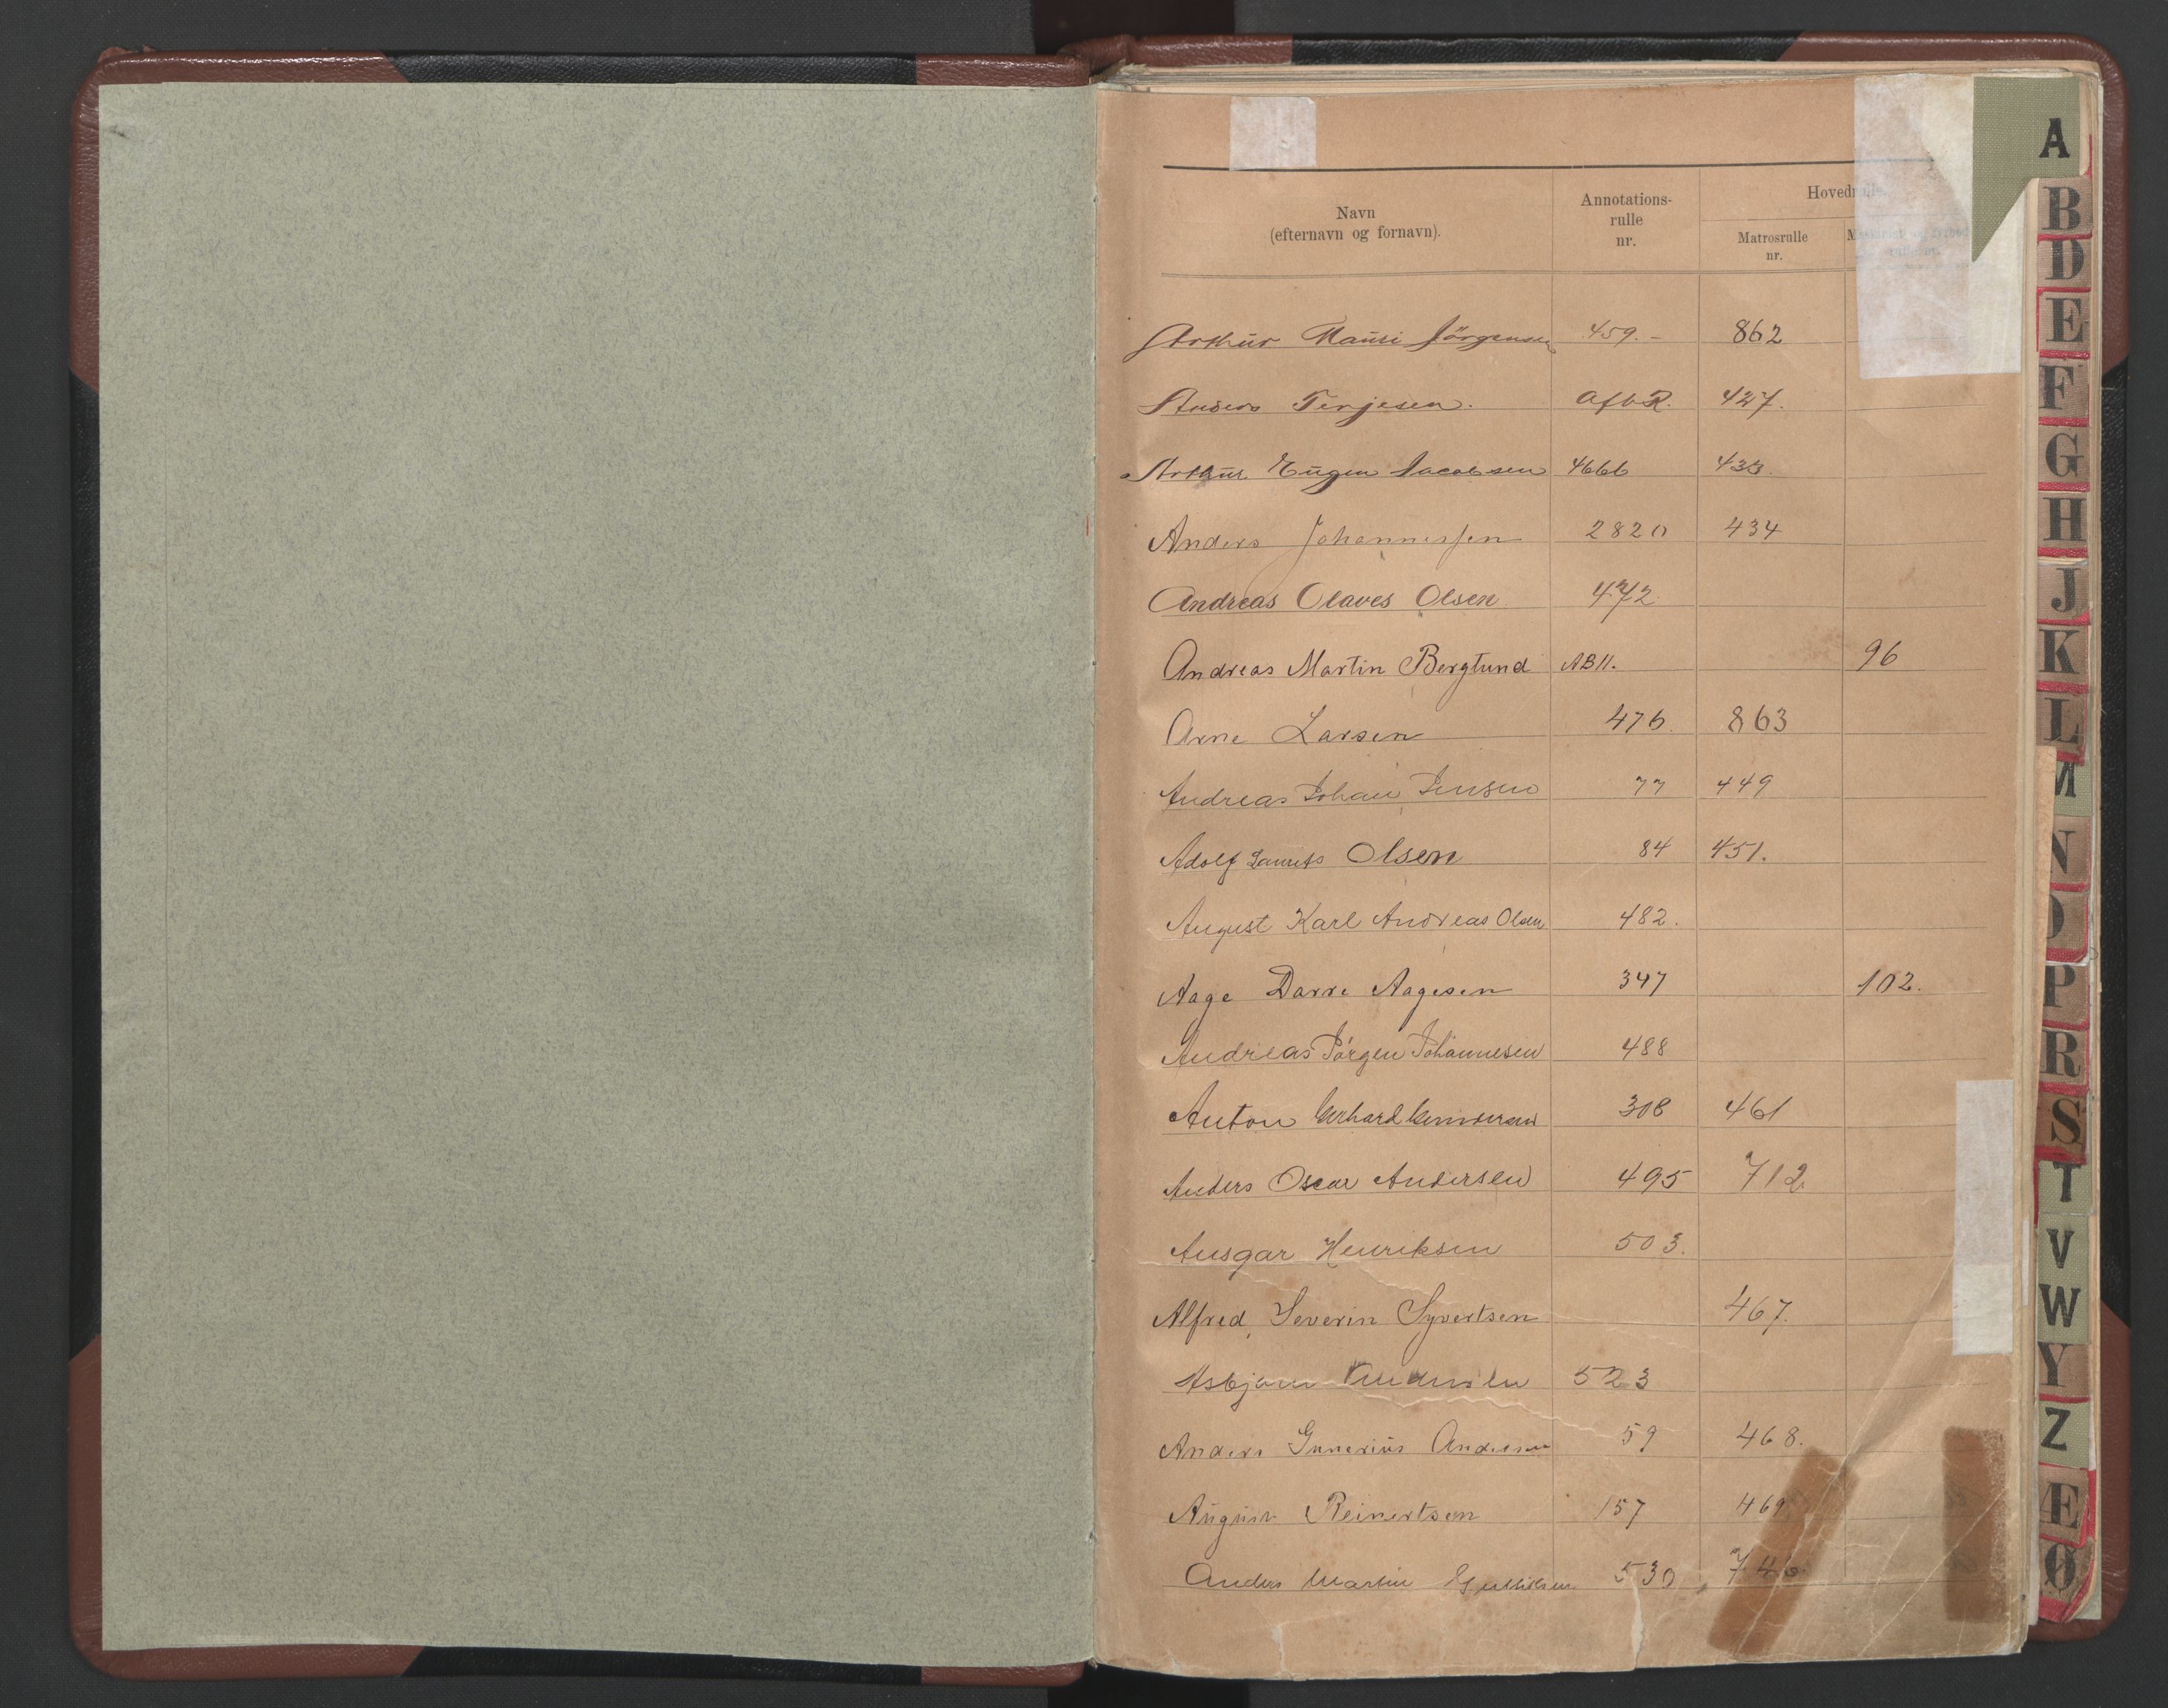 Navn
(efternavn og fornavn).
Annotations-
rulle
nr.
Hovedrulle
Matrosrulle
nr.
Arthur Jörgensen 459.- 862
Anders Terjesen. AfbR. 427.
Arthur Eugen Jacobsen 4666 433.
Anders Johannessen 2820 434
Andreas Olaves Olsen 472
Andreas Martin Berglund AB11. 96
Arne Larsen 476. 863
Andreas Johan Jensen 77 449
Adolf Laurits Olsen 84 451.
August Karl Andreas Olsen 482.
Aage Darre Aagesen 347 102.
Andreas Jörgen Johannesen 488
Anton Gerhard 308 461
Anders Oscar Andersen 495 712
Ansgar Henriksen 503.
Alfred Severin Syvertsen 467.
Asbjørn Andersen 523
Anders Gunerius Andersen 59 468.
August Reinertsen 157 469
Anders Martin 530 746
A
B
D
E
F
G
H
J
K
L
M
N
O
P
R
S
T
V
W
Y
Z
Æ
Ø